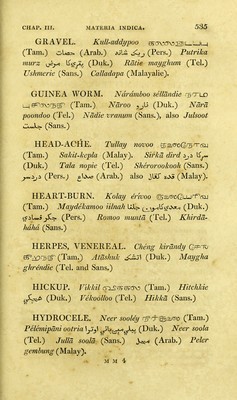 CHAP. III. MATERIA INDICA. 535
GRAVEL. Kull-auddypoo
(Tam.) حصات (Arab.) ریك شانه (Pers.) Putrika
murz (Duk.) Rātie mayghum (Tel.)
Ushmeric (Sans.) Calladapa (Malayalie).
GUINEA WORM. Nárámboo séllāndie
(Tam.) Nāroo نارو (Duk.) Nārū
poondoo (Tel.) Nādie vranum (Sans.), also Julsoot
(Sans.)
HEAD-ACHE. Tullay novoo
(Tam.) Sakit-kepla (Malay). Sirkā dird سركا درد
(Duk.) Tala nopie (Tel.) Shérorookook (Sans.)
دردسر (Pers.) صداع (Arab.) also (Malay).
HEART-BURN. Kolay érivoo
(Tam.) Maydékamoo iilnah (Duk.)
(Pers.) Romoo muntā (Tel.) Khirdā-
hāhā (Sans.)
HERPES, VENEREAL. Chéng kirāndy
(Tam.) Atāshuk اتشك (Duk.) Maygha
ghréndie (Tel. and Sans.)
HICKUP. Vikkil (Tam.) Hitchkie
هچكي (Duk.) Vékoolloo (Tel.) Hikkā (Sans.)
HYDROCELE. Neer sooléy (Tam.)
Pélémipāni ootria (Duk.) Neer soola
(Tel.) Jullā soolā (Sans.) (Arab.) Peler
gembung (Malay).
M M 4